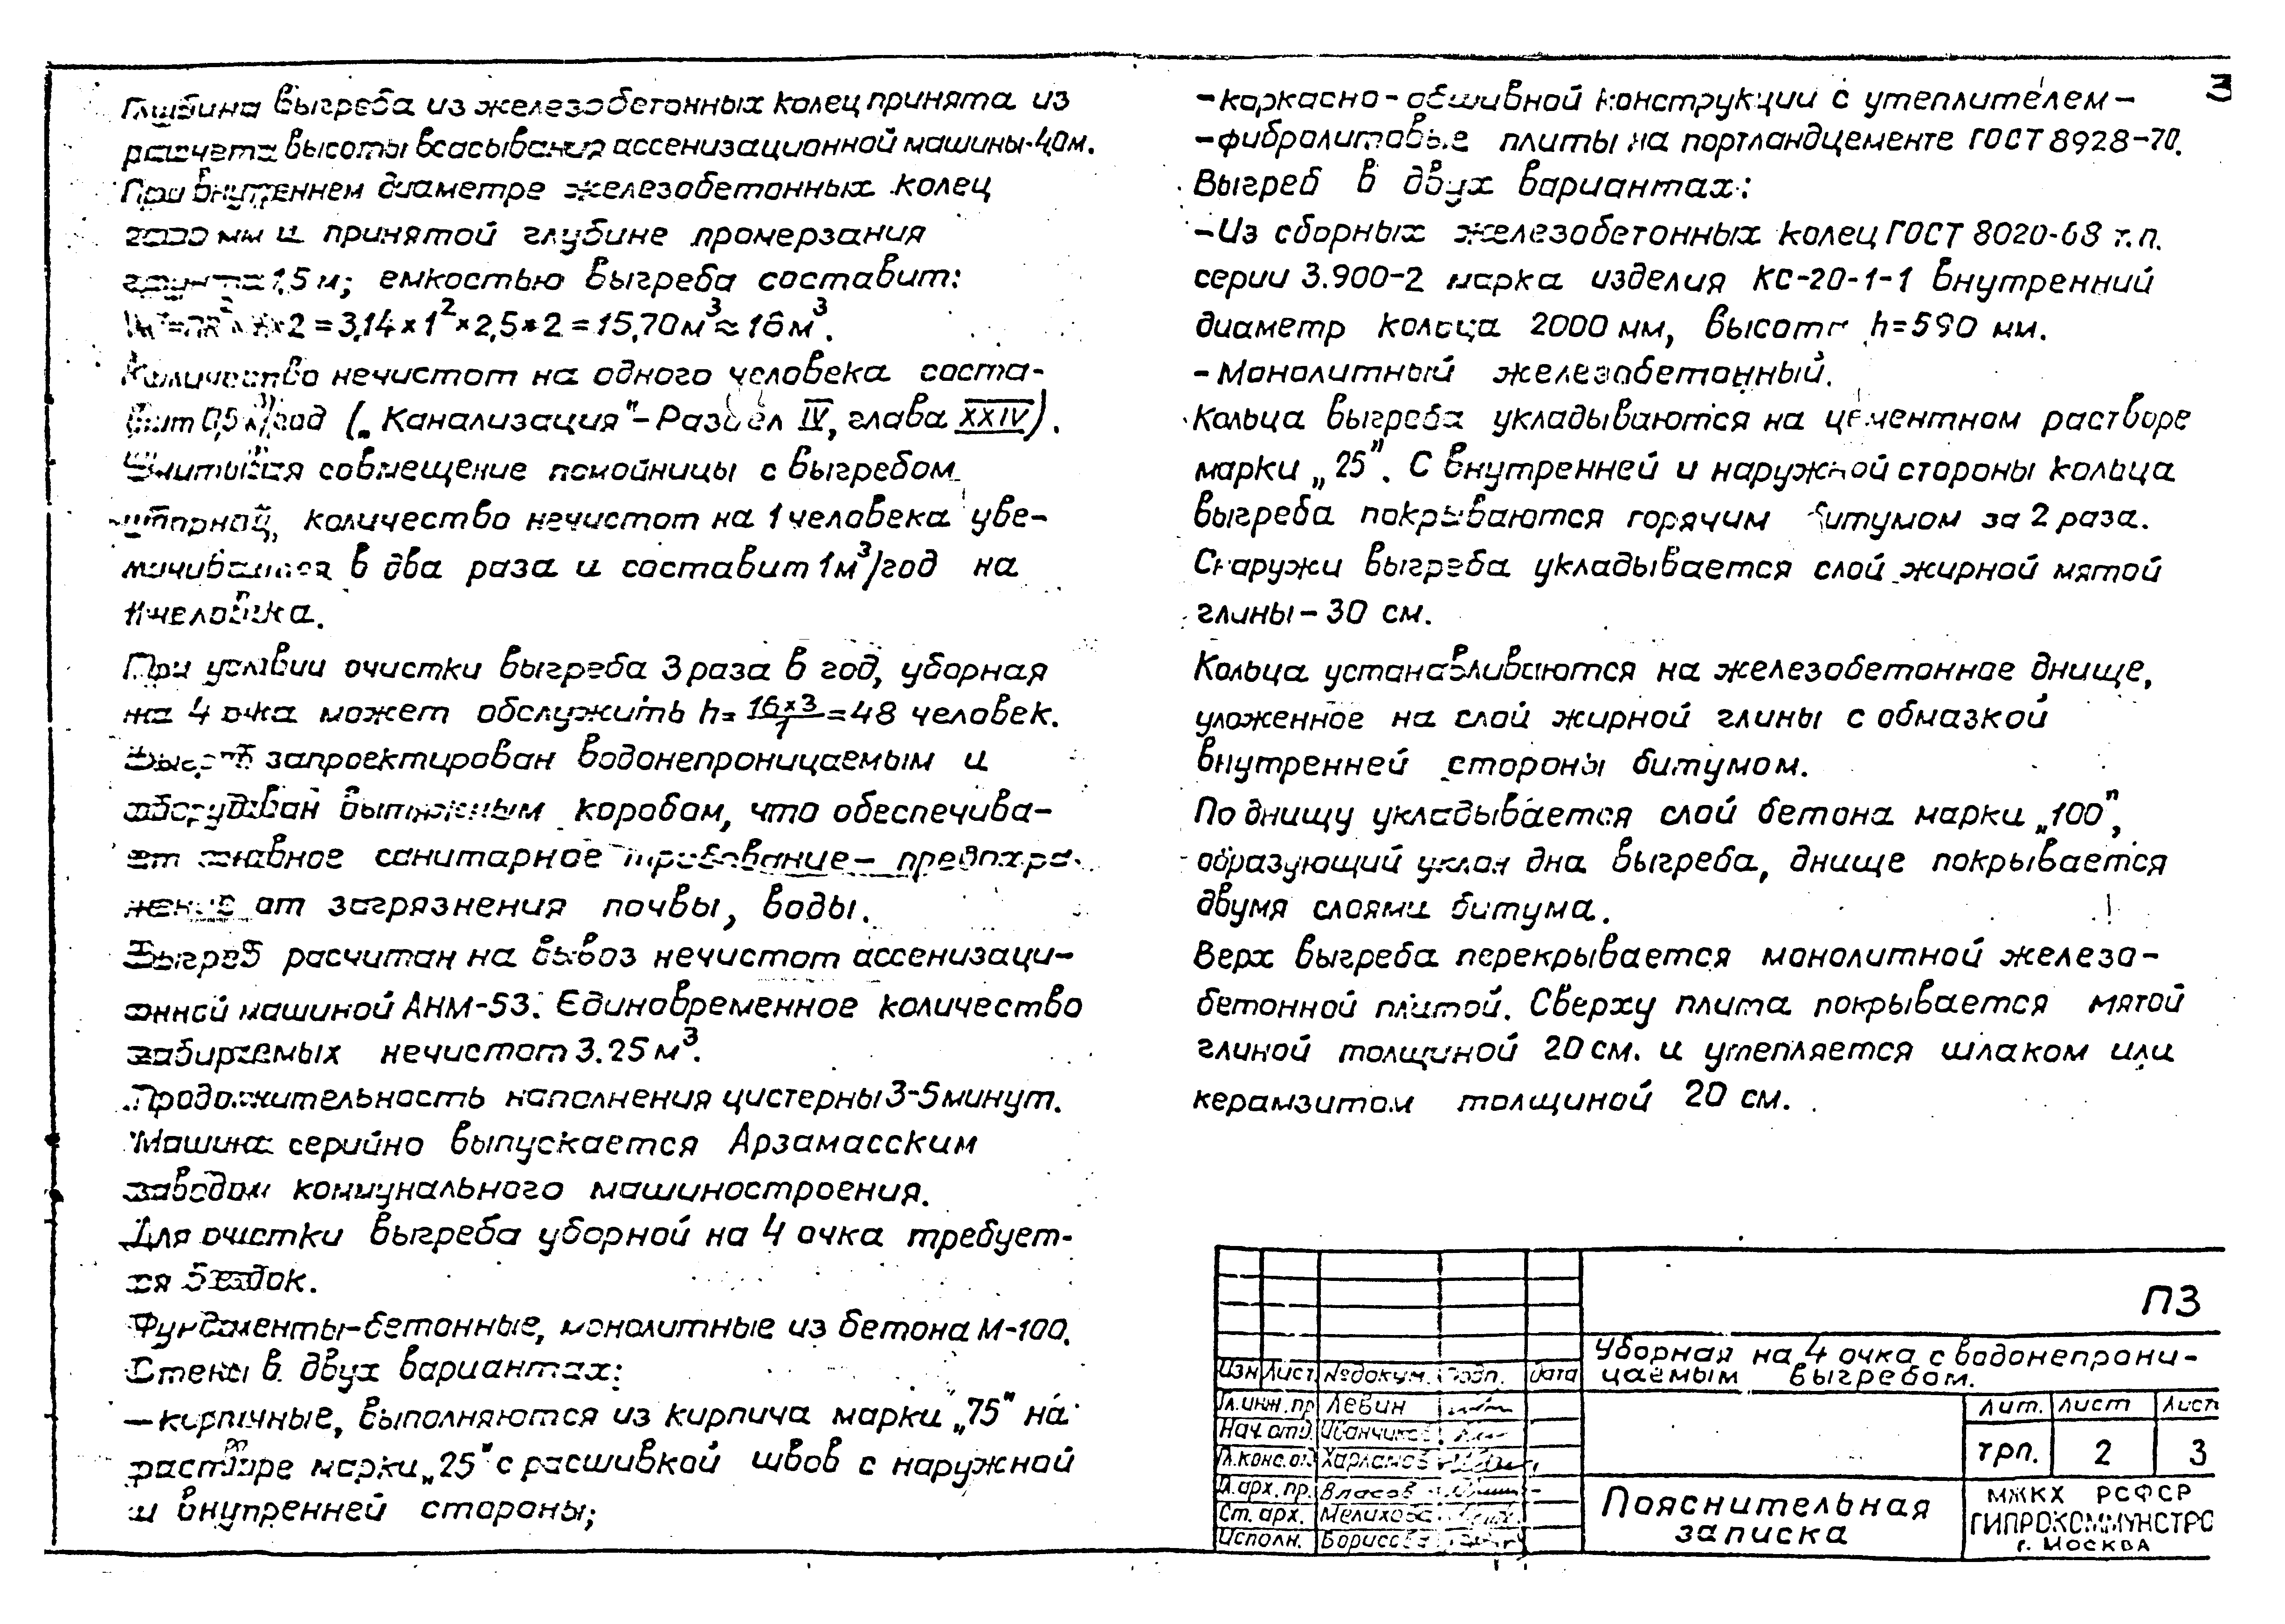 Глубина выгреба из железобетонных колец принята из
расчета высоты всасывания ассенизационной машины-4,0м.
При внутреннем диаметре железобетонных колец
2000 мм и принятой глубине промерзания
грунта 1,5 м; емкостью выгреба составит:
×2 = 3,14 × 1² × 2,5 × 2 = 15,70 м³ ≈ 16 м³.
Количество нечистот на одного человека соста-
вит 0,5 м³/год („Канализация"-Раздел IV, глава XXIV).
Учитывая совмещение помойницы с выгребом
уборной, количество нечистот на 1 человека уве-
личивается в два раза и составит 1м³/год на
1 человека.
При условии очистки выгреба 3 раза в год, уборная
на 4 очка может обслужить h= 16×3/1 =48 человек.
Выгреб запроектирован водонепроницаемым и
оборудован вытяжным коробом, что обеспечива-
ет главное санитарное требование- предохра-
нение от загрязнения почвы, воды.
Выгреб расчитан на вывоз нечистот ассенизаци-
онной машиной АНМ-53. Единовременное количество
забираемых нечистот 3.25 м³.
Продолжительность наполнения цистерны 3-5 минут.
Машина серийно выпускается Арзамасским
заводом коммунального машиностроения.
Для очистки выгреба уборной на 4 очка требует-
ся 5 ездок.
Фундаменты-бетонные, монолитные из бетона М-100.
Стены в двух вариантах:
- кирпичные, выполняются из кирпича марки „75" на
растворе марки „25" с расшивкой швов с наружной
и внутренней стороны;
3
-каркасно-обшивной конструкции с утеплителем-
-фибролитовые плиты на портландцементе ГОСТ 8928-70.
Выгреб в двух вариантах:
-Из сборных железобетонных колец ГОСТ 8020-68 т.п.
серии 3.900-2 марка изделия КС-20-1-1 внутренний
диаметр кольца 2000 мм, высота h=590 мм.
- Монолитный железобетонный.
Кольца выгреба укладываются на цементном растворе
марки „25". С внутренней и наружной стороны кольца
выгреба покрываются горячим битумом за 2 раза.
Снаружи выгреба укладывается слой жирной мятой
глины-30 см.
Кольца устанавливаются на железобетонное днище,
уложенное на слой жирной глины с обмазкой
внутренней стороны битумом.
По днищу укладывается слой бетона марки „100",
образующий уклон дна выгреба, днище покрывается
двумя слоями битума.
Верх выгреба перекрывается монолитной железо-
бетонной плитой. Сверху плита покрывается мятой
глиной толщиной 20 см. и утепляется шлаком или
керамзитом толщиной 20 см.
ПЗ
Уборная на 4 очка с водонепрони-
цаемым выгребом.
Изм Лист №докум. Подп. Дата
Гл.инж.пр Левин
Нач.отд. Иванчиков
Гл.конс.от. Харламов
Гл.арх.пр. Власов
Ст. арх. Мелихова
Исполн. Борисова
Лит. Лист Лист
трп. 2 3
Пояснительная
записка
МЖКХ РСФСР
ГИПРОКОММУНСТРО
г. Москва